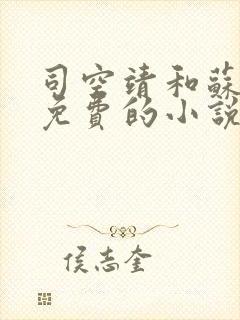 司空靖和蘇
免費的小說
侯志奎